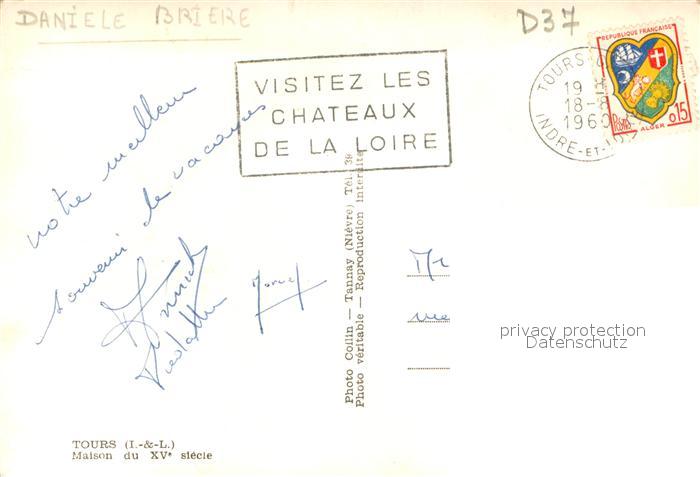 DANIELE BRIERE
D37
REPUBLIQUE FRANÇAISE
POSTES
0,15
ALGER
TOURS
19 H
18-8
1960
INDRE-ET-
VISITEZ LES
CHATEAUX
DE LA LOIRE
notre meilleur
souvenir de vacances
Annick
Photo Collin — Tannay (Nièvre) Tél. 39
Photo véritable — Reproduction interdite
Mr
privacy protection
Datenschutz
TOURS (I.-&-L.)
Maison du XVe siècle